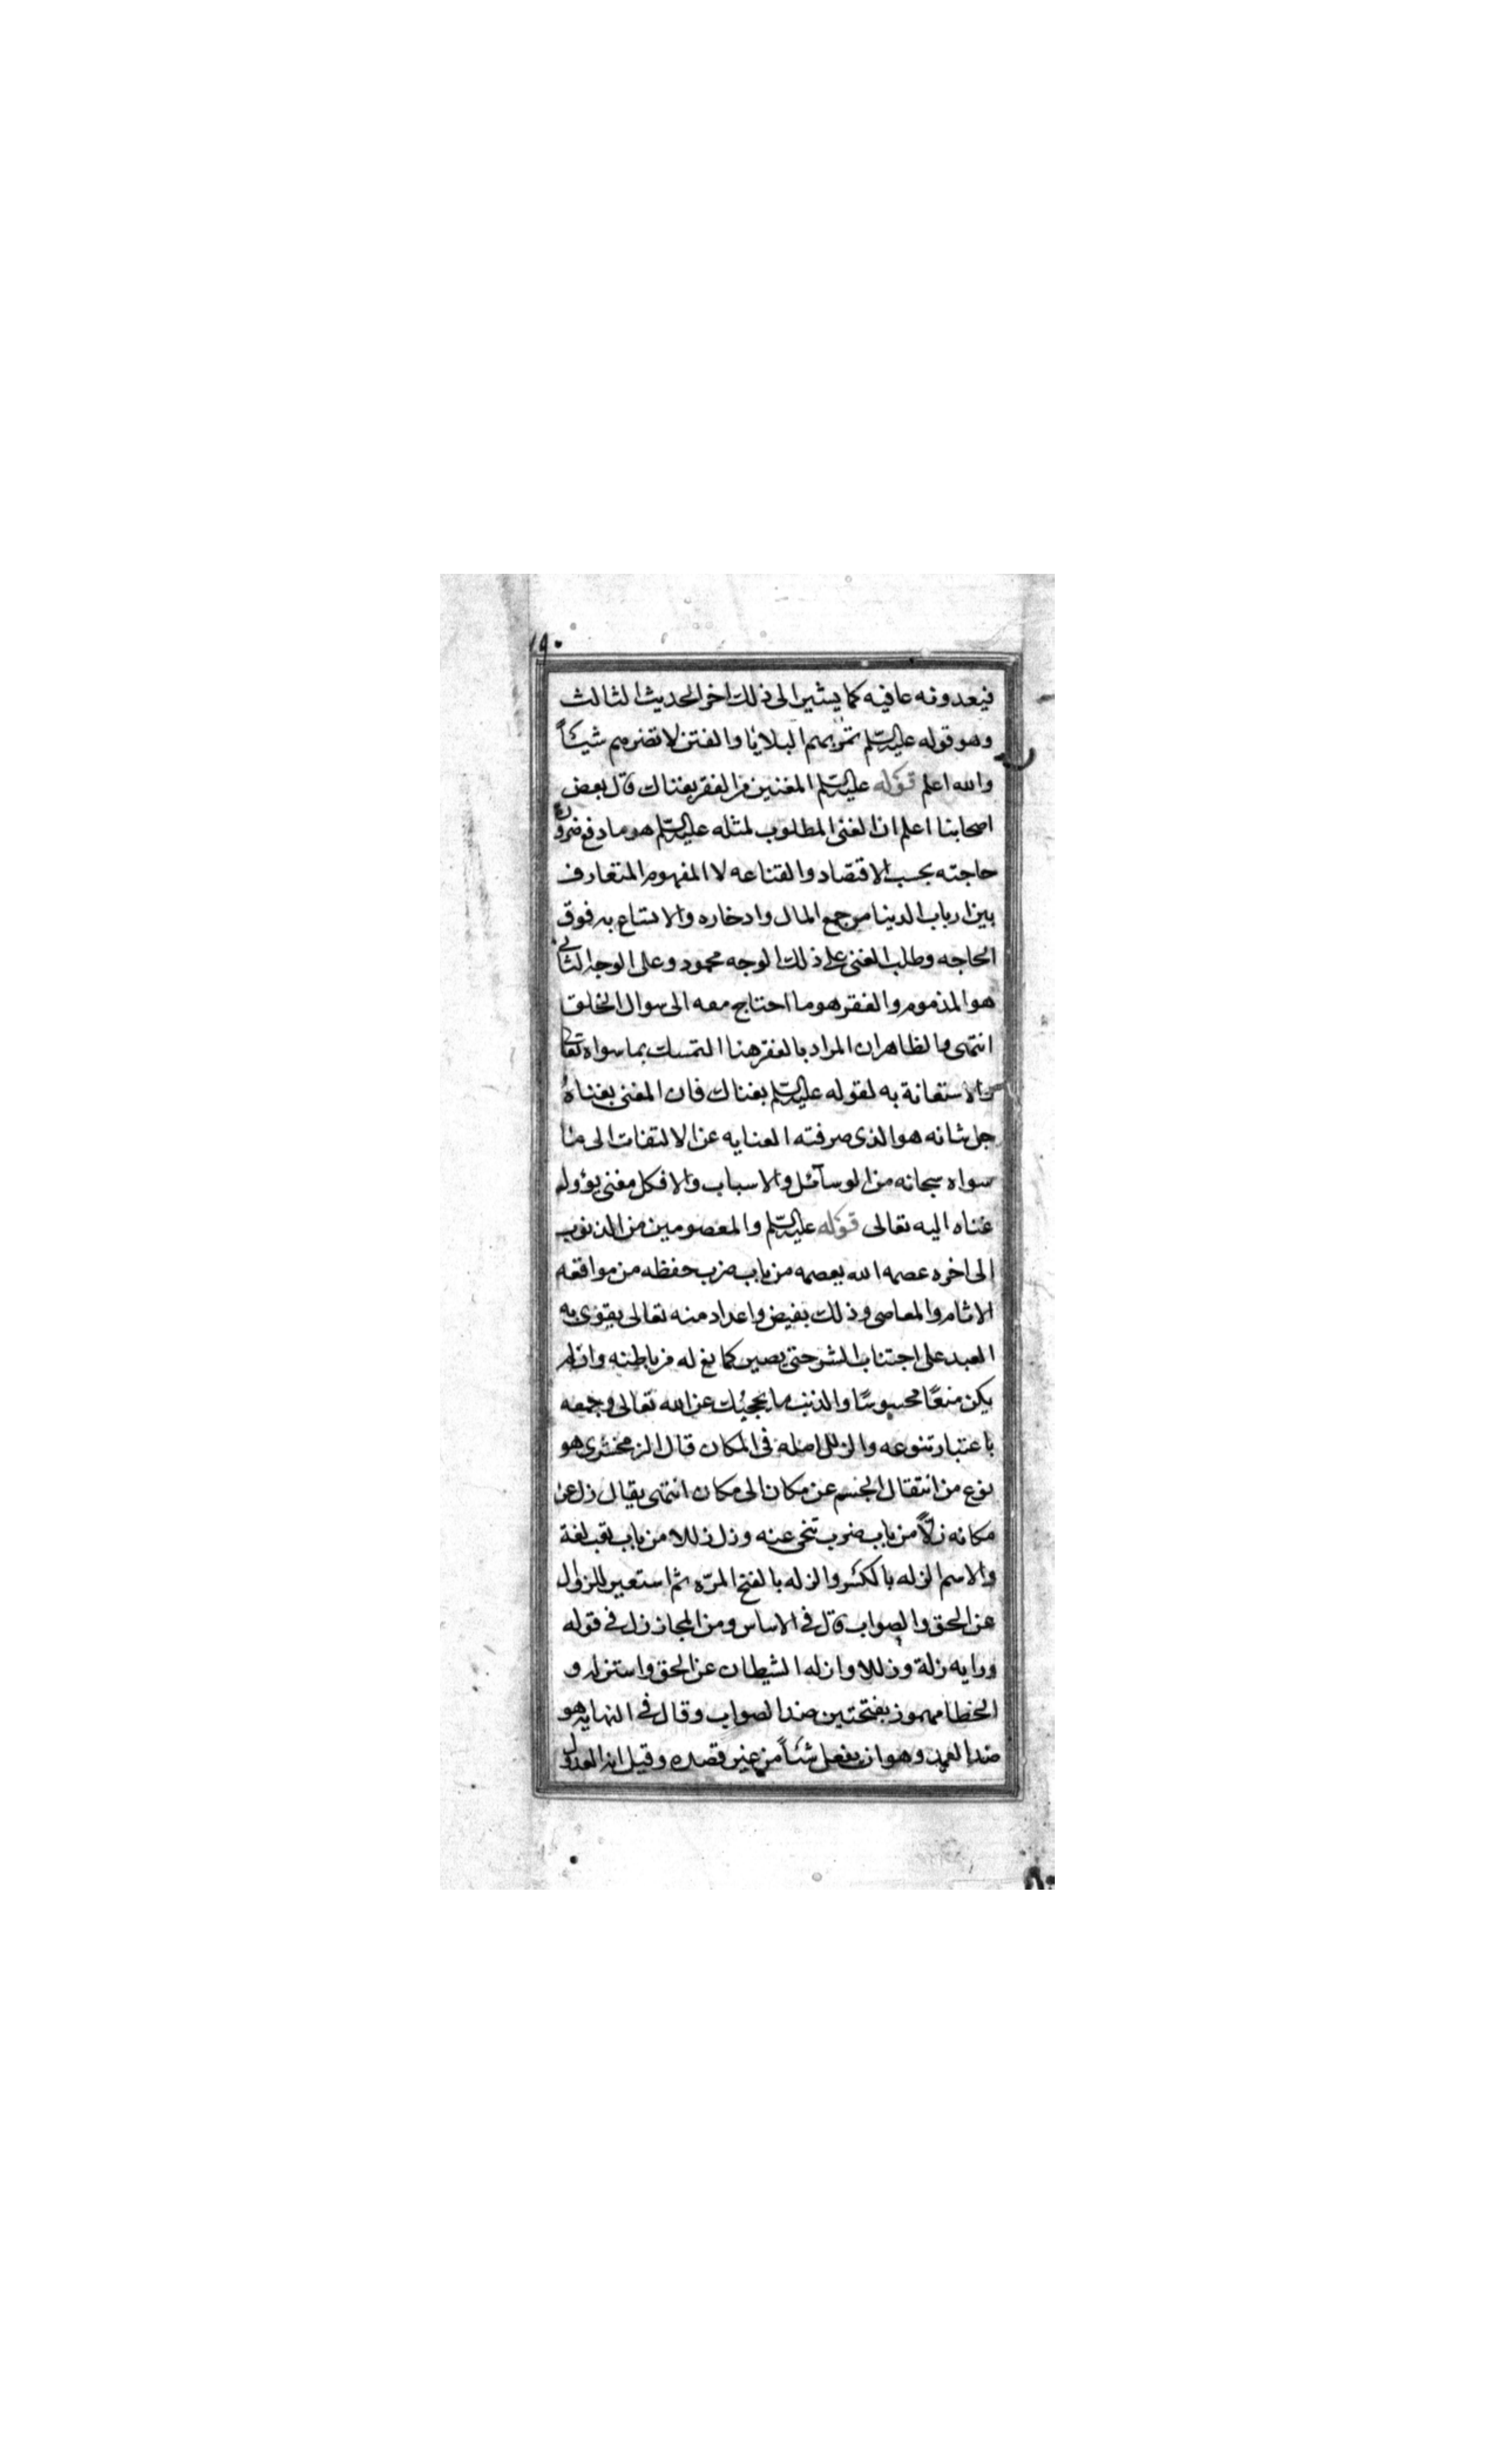 ١٩٠
فيعدونه عافيه كما يشير الى ذلك اخر الحديث الثالث
وهو قوله عليه السلم تمر بهم البلايا والفتن لا تضرهم شيئاً
والله اعلم قوله عليه السلم المغنين من الفقر بغناك قال بعض
اصحابنا اعلم ان الغنى المطلوب لمثله عليه السلم هو ما دفع ضرورة
حاجته بحسب الاقتصاد والقناعه لا المفهوم المتعارف
بين ارباب الدنيا من جمع المال وادخاره والاتساع به فوق
الحاجه وطلب الغنى على ذلك الوجه محمود وعلى الوجه الثانى
هو المذموم والفقر هو ما احتاج معه الى سوال الخلق
انتهى والظاهر ان المراد بالفقر هنا التمسك بما سواه تعالى
والاستغانة به لقوله عليه السلم بغناك فان المغنى بغناهُ
جل شانه هو الذى صرفته العنايه عن الالتفات الى ما
سواه سبحانه من الوسآئل والاسباب والا فكل مغنى يؤول
غناه اليه تعالى قوله عليه السلم والمعصومين من الذنوب
الى اخره عصمه الله يعصمه من باب ضرب حفظه من مواقعه
الاثام والمعاصى وذلك بفيض واعداد منه تعالى يقوى به
العبد على اجتناب الشر حتى يصير كمانع له من باطنه وان لم
يكن منعًا محسوسًا والذنب ما يحجبك عن الله تعالى وجمعه
باعتبار تنوعه والزلل اصله فى المكان قال الزمخشرى هو
نوع من انتقال الجسم عن مكان الى مكان انتهى يقال زل عن
مكانه زلاً من باب ضرب تنحى عنه وزل زللا من باب تعب لغة
والاسم الزله بالكسر والزله بالفتح المرّه ثم استعير للزوال
عن الحق والصواب قال فى الاساس ومن المجاز زل فى قوله
ورايه زلة وزللا وازله الشيطان عن الحق واستزله و
الخطا مهموز بفتحتين ضد الصواب وقال فى النهايه هو
ضد العمد وهو ان يفعل شئاً من غير قصده وقيل انه العدول